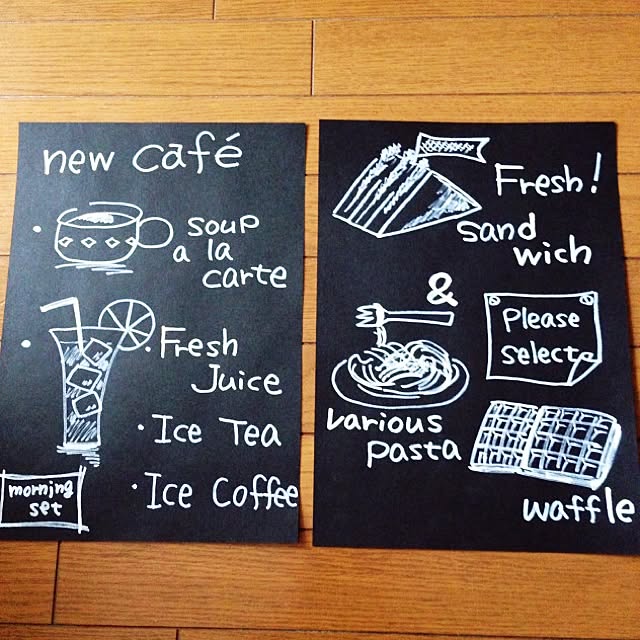 new café
soup
a la
carte
Fresh
Juice
Ice Tea
Ice Coffee
morning
set
Fresh!
sand
wich
&
Please
selecte
various
pasta
waffle